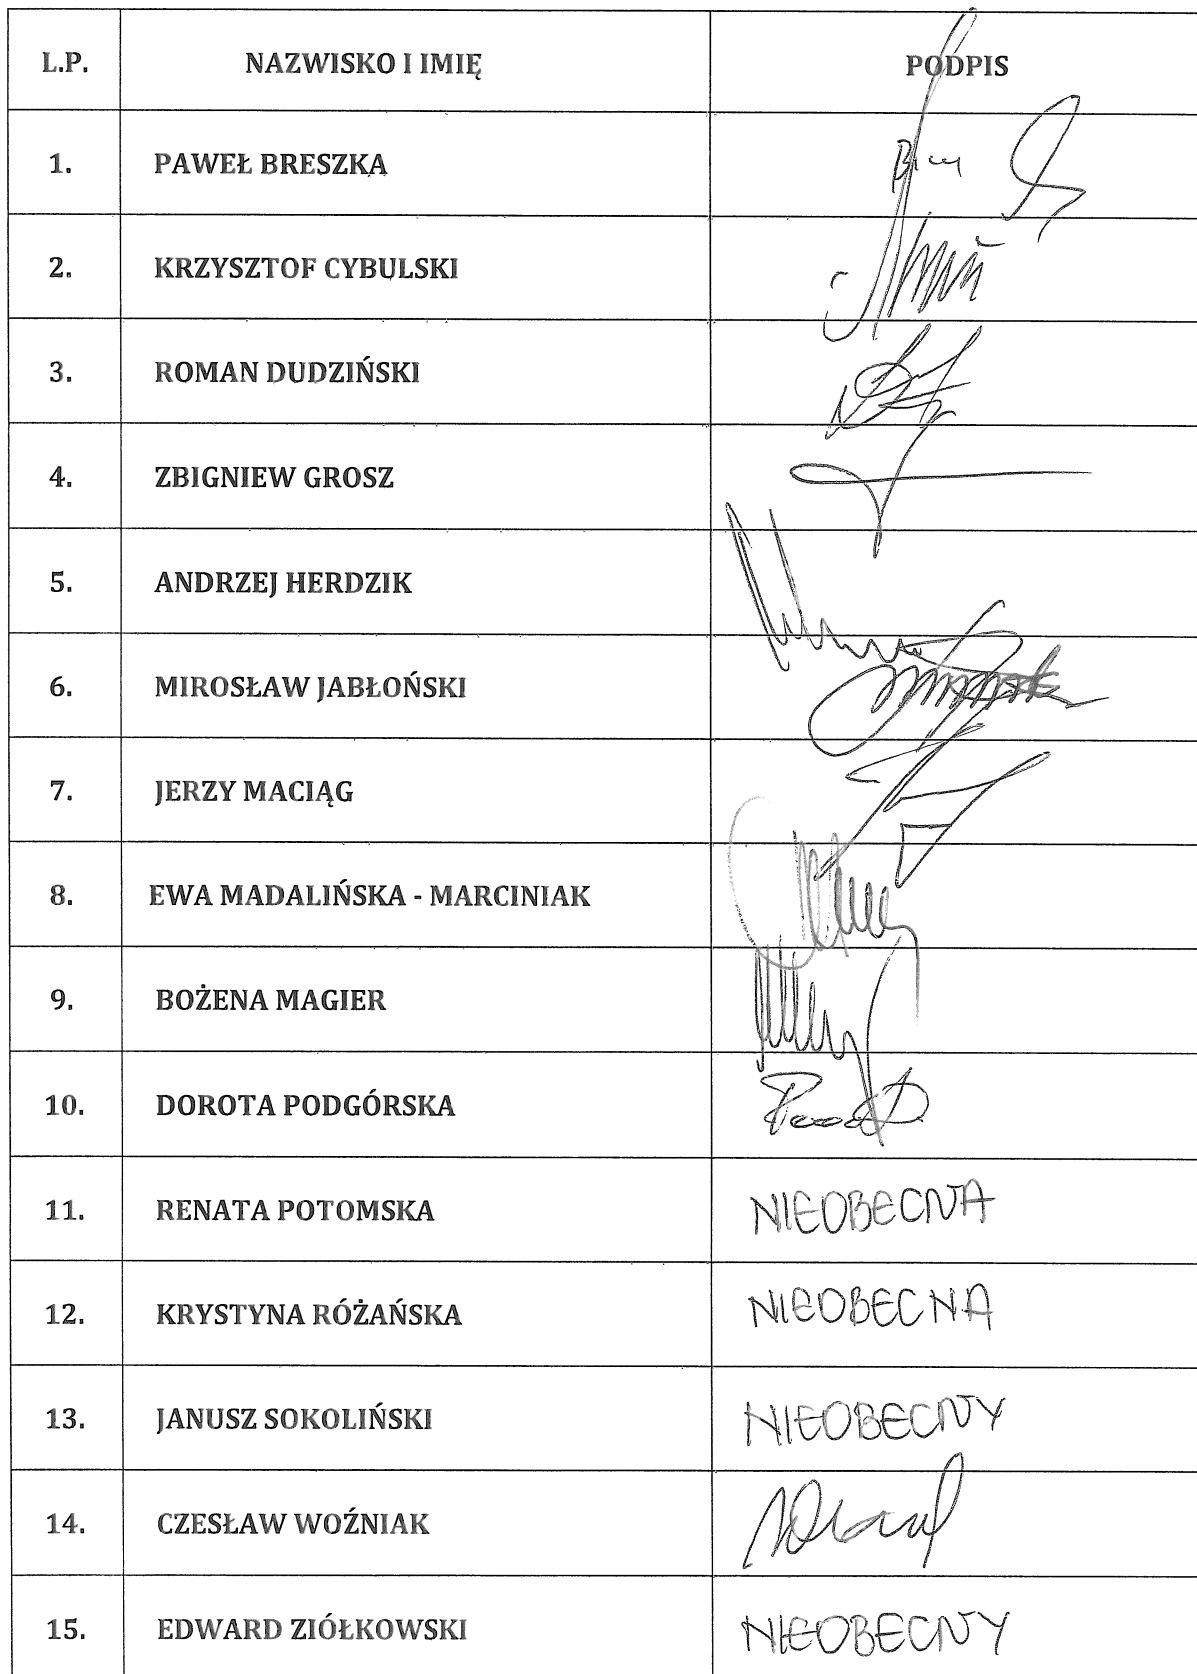 L.P. NAZWISKO I IMIĘ PODPIS
1. PAWEŁ BRESZKA
2. KRZYSZTOF CYBULSKI
3. ROMAN DUDZIŃSKI
4. ZBIGNIEW GROSZ
5. ANDRZEJ HERDZIK
6. MIROSŁAW JABŁOŃSKI
7. JERZY MACIĄG
8. EWA MADALIŃSKA - MARCINIAK
9. BOŻENA MAGIER
10. DOROTA PODGÓRSKA
11. RENATA POTOMSKA NIEOBECNA
12. KRYSTYNA RÓŻAŃSKA NIEOBECNA
13. JANUSZ SOKOLIŃSKI NIEOBECNY
14. CZESŁAW WOŹNIAK
15. EDWARD ZIÓŁKOWSKI NIEOBECNY